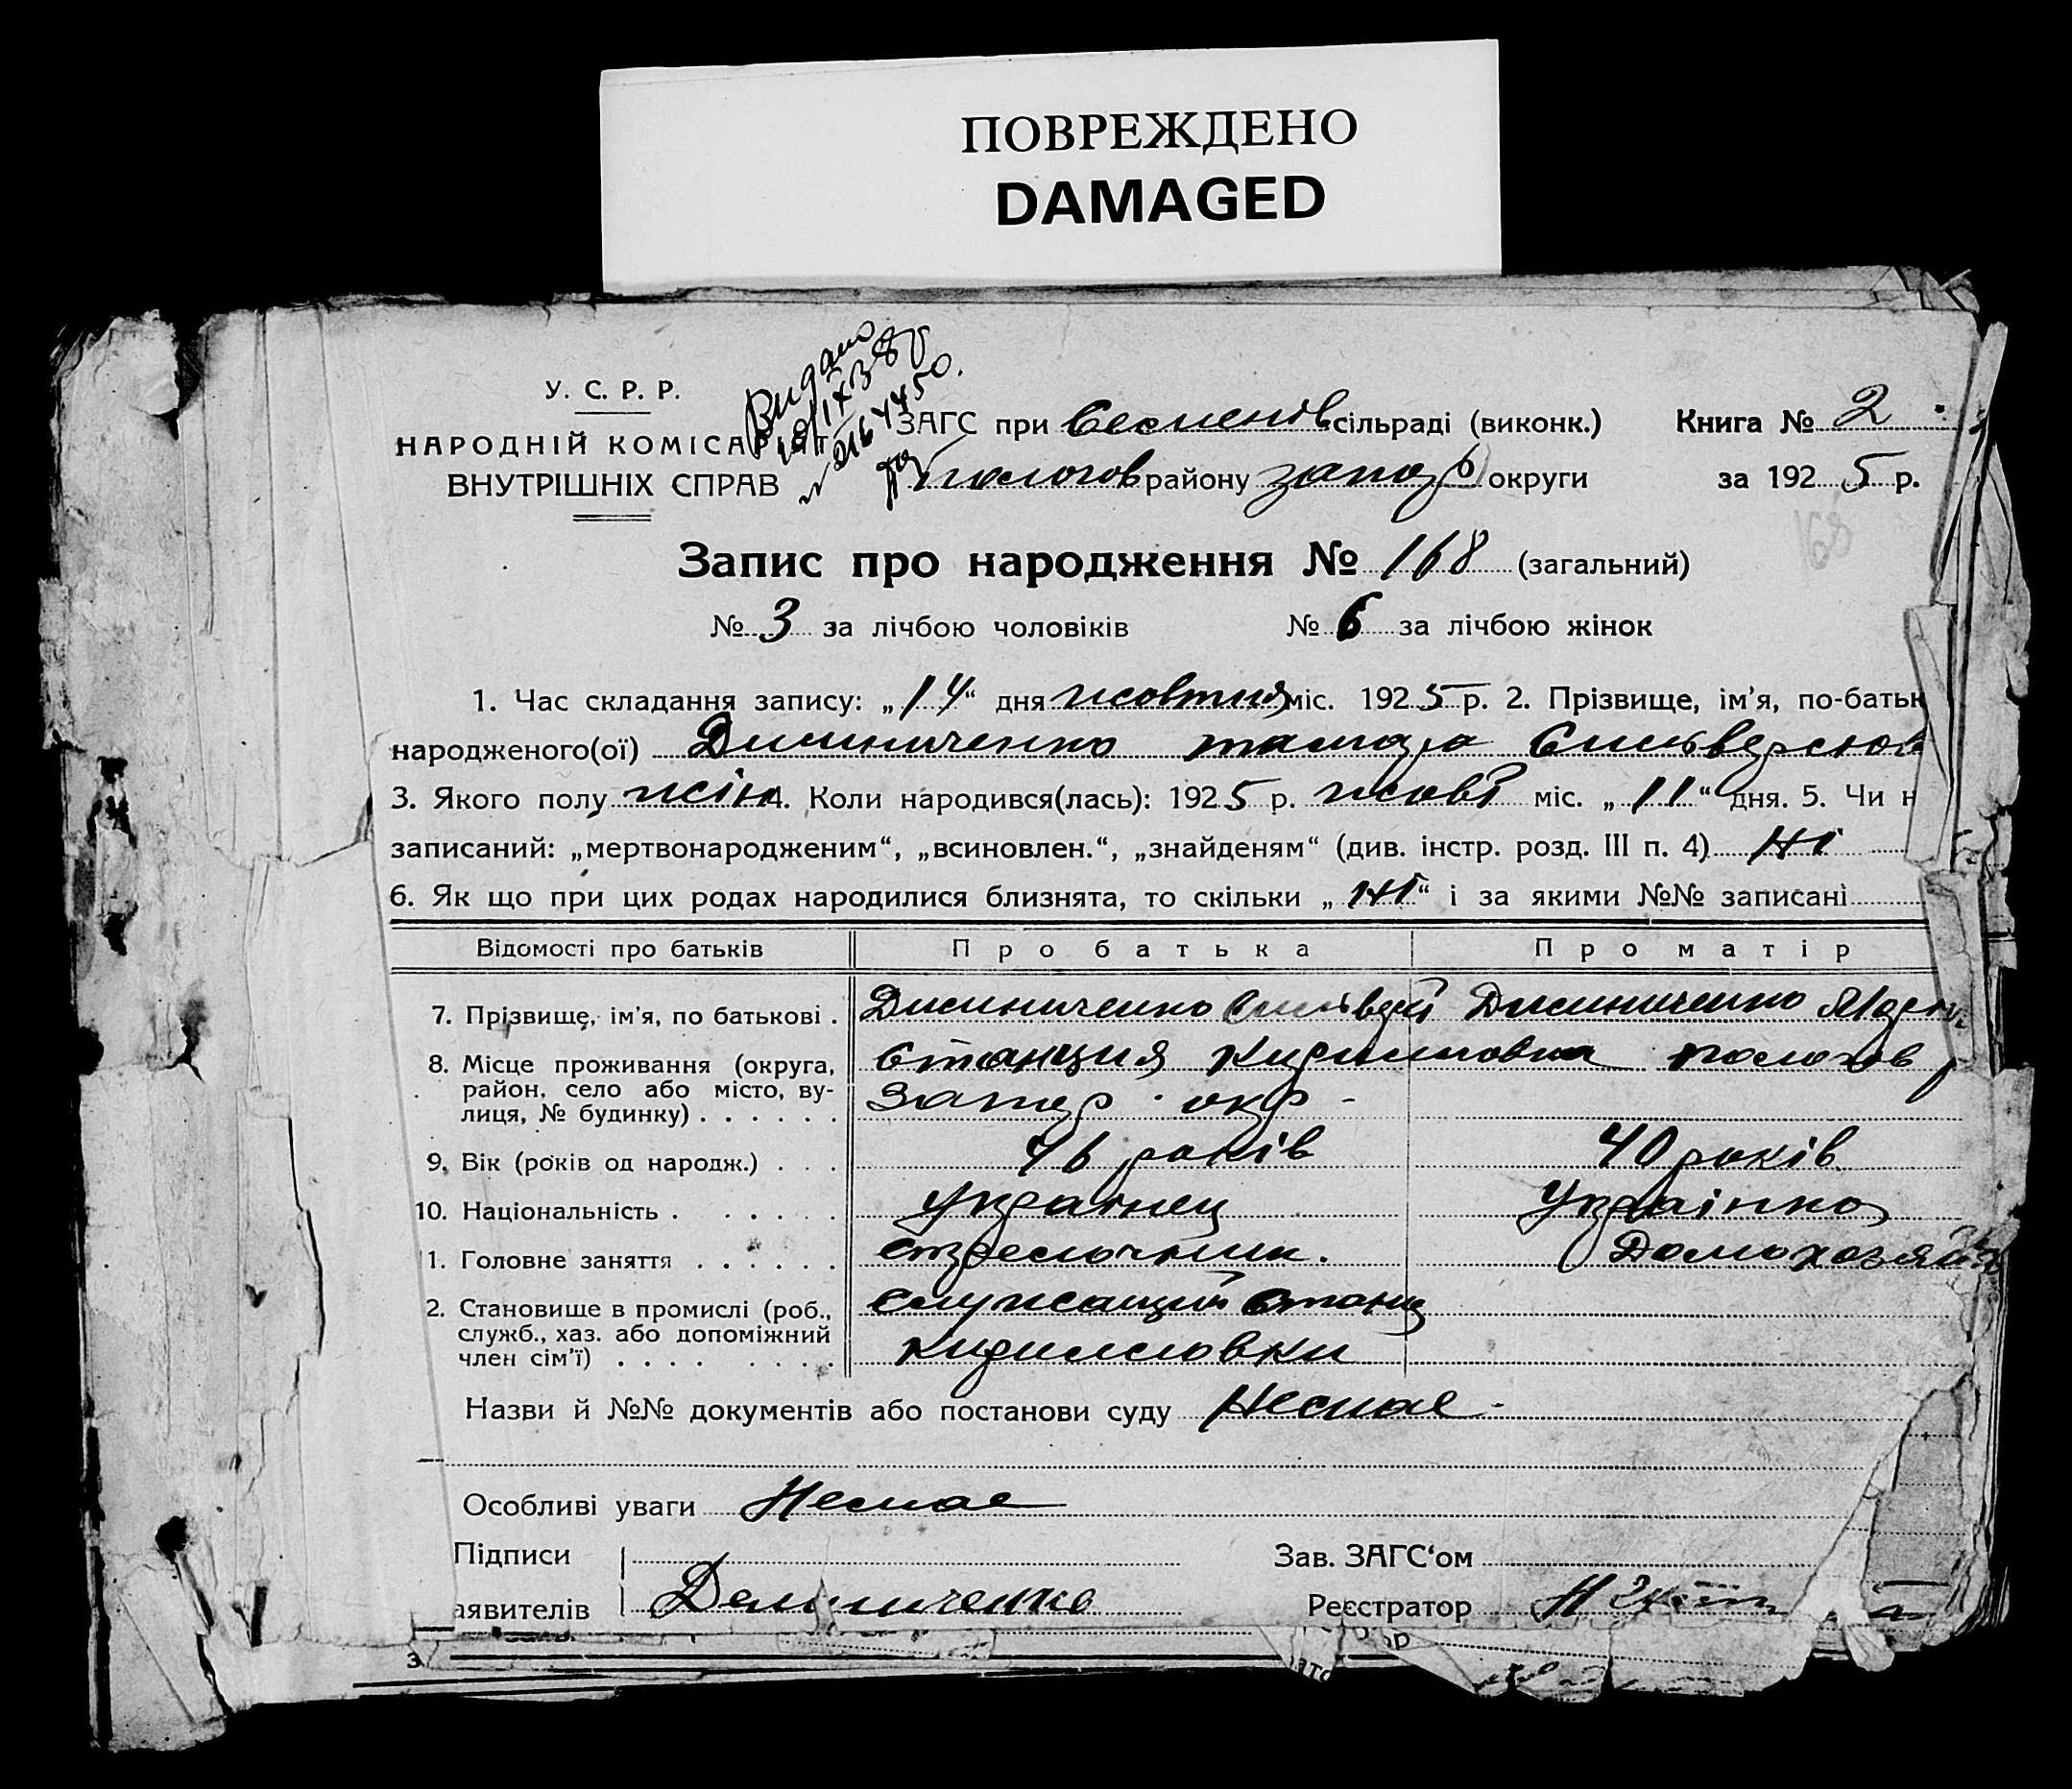 ПОВРЕЖДЕНО
DAMAGED
У. С. Р. Р.
НАРОДНІЙ КОМІСАРІЯТ
ВНУТРІШНІХ СПРАВ
Видано
ЗАГС при Семенів сільраді (виконк.)
Книга № 2
Пологов району Запор округи
за 1925 р.
Запис про народження № 168 (загальний)
№ 3 за лічбою чоловіків № 6 за лічбою жінок
1. Час складання запису: „14“ дня жовтня міс. 1925 р. 2. Прізвище, ім’я, по-батьк
народженого(ої) Дишниченко Тамара
3. Якого полу жін 4. Коли народився(лась): 1925 р. жовт міс. „11“ дня. 5. Чи н
записаний: „мертвонародженим“, „всиновлен.“, „знайденям“ (див. інстр. розд. III п. 4) ні
6. Як що при цих родах народилися близнята, то скільки „ні“ і за якими №№ записані
Відомості про батьків Про батька Про матір
7. Прізвище, ім’я, по батькові .
8. Місце проживання (округа, Станция Кирилловка пологов р
район, село або місто, ву- Запор. окр -
лиця, № будинку) . . . . . .
9. Вік (років од народж.) . . . 46 років 40 років
10. Національність . . . . . . Украінец Украінка
1. Головне заняття . . . . . . стрелочник. Домохозяйка
2. Становище в промислі (роб., служащий Станц
служб., хаз. або допоміжний Кирилловки
член сім’ї) . . . . . . . .
Назви й №№ документів або постанови суду Немае -
Особливі уваги Немае
Підписи Зав. ЗАГС‘ом
аявителів Реєстратор